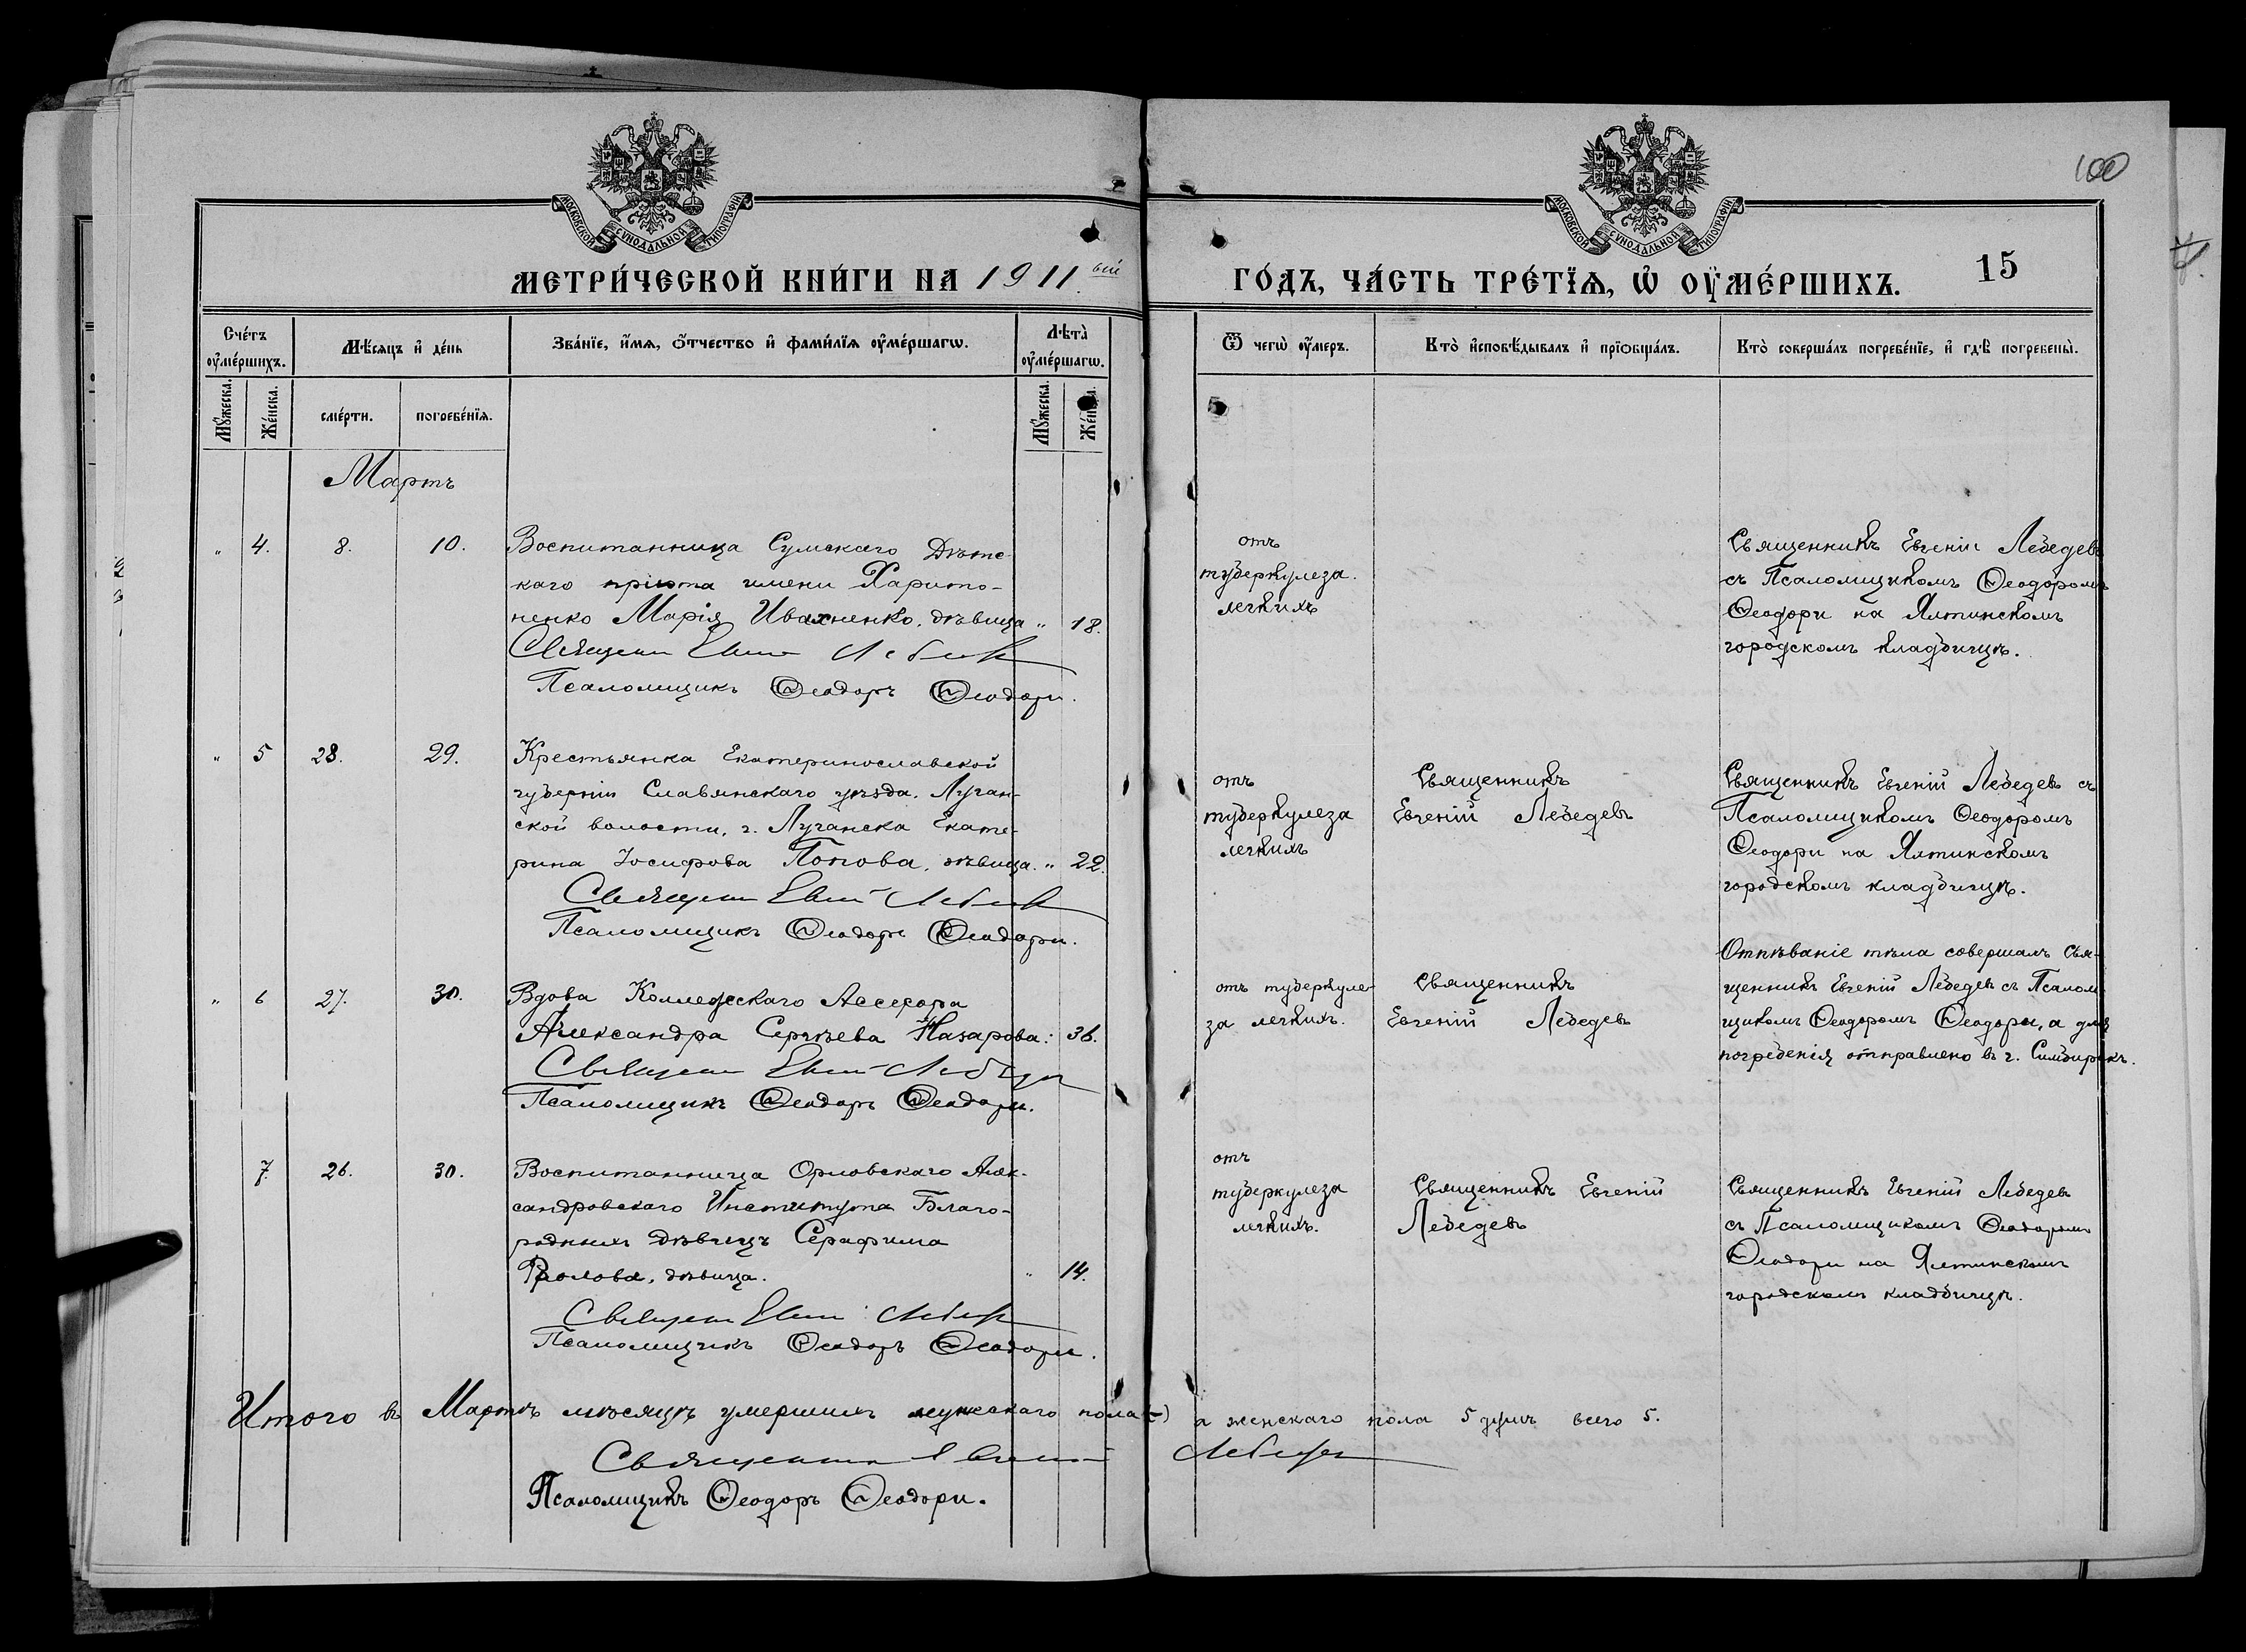 100
МОСКОВСКОЙ СѴНОДАЛЬНОЙ ТИПОГРАФІИ
МОСКОВСКОЙ СѴНОДАЛЬНОЙ ТИПОГРАФІИ
МЕТРИ́ЧЕСКОЙ КНИ́ГИ НА 1911ый ГО́ДЪ, ЧА́СТЬ ТРЕ́ТЇѦ, Ѡ҆ ОУ҆МЕ́РШИХЪ. 15
Сче́тъ оу҆ме́ршихъ.
Мѣ́сяцъ и҆ де́нь
Зва́нїе, и҆́мѧ, ѻ҆́тчество и҆ фами́лїѧ оу҆ме́ршагѡ.
Лѣ́та оу҆ме́ршагѡ.
Ѿ чегѡ̀ оу҆́меръ.
Кто̀ и҆сповѣ́дывалъ и҆ прїѡбща́лъ.
Кто̀ соверша́лъ погребе́нїе, и҆ гдѣ̀ погребены̀.
Мꙋ́жеска.
Же́нска.
сме́рти.
погребе́нїѧ.
Мꙋ́жеска.
Же́нска.
Мартъ
„ 4. 8. 10.
Воспитанница Сумскаго Дѣтс-
каго пріюта имени Харито-
ненко Марія Ивахненко, дѣвица „ 18.
Священ Евг Лебедев
Псаломщикъ Ѳеодоръ Ѳеодори.
отъ
туберкулеза
легкихъ
Священникъ Евгеній Лебедевъ
съ Псаломщикомъ Ѳеодоромъ
Ѳеодори на Ялтинскомъ
городскомъ кладбищѣ.
„ 5 28. 29.
Крестьянка Екатеринославской
губерніи Славянскаго уѣзда, Луган-
ской волости, г. Луганска Екате-
рина Іосифова Попова, дѣвица. „ 22.
Священ Евг Лебедев
Псаломщикъ Ѳеодоръ Ѳеодори.
отъ
туберкулеза
легкихъ
Священникъ
Евгеній Лебедевъ
Священникъ Евгеній Лебедевъ съ
Псаломщикомъ Ѳеодоромъ
Ѳеодори на Ялтинскомъ
городскомъ кладбищѣ.
„ 6 27. 30.
Вдова Коллежскаго Ассесора
Александра Сергѣева Назарова: 36.
Священ Евг Лебедев
Псаломщикъ Ѳеодоръ Ѳеодори.
отъ туберкуле-
за легкихъ.
Священникъ
Евгеній Лебедевъ
Отпѣваніе тѣла совершалъ Свя-
щенникъ Евгеній Лебедевъ съ Псалом-
щикомъ Ѳеодоромъ Ѳеодори, а для
погребенія отправлено въ г. Симбирскъ.
7. 26. 30.
Воспитанница Орловскаго Алек-
сандровскаго Института Благо-
родныхъ дѣвицъ Серафима
Фролова, дѣвица. „ 14.
Священ Евг Лебедев
Псаломщикъ Ѳеодоръ Ѳеодори.
отъ
туберкулеза
легкихъ.
Священникъ Евгеній
Лебедевъ
Священникъ Евгеній Лебедевъ
съ Псаломщикомъ Ѳеодоромъ
Ѳеодори на Ялтинскомъ
городскомъ кладбищѣ.
Итого въ Мартѣ мѣсяцѣ умершихъ мужескаго пола (-) а женскаго пола 5 душъ всего 5.
Священник Евгеній Лебедев
Псаломщикъ Ѳеодоръ Ѳеодори.